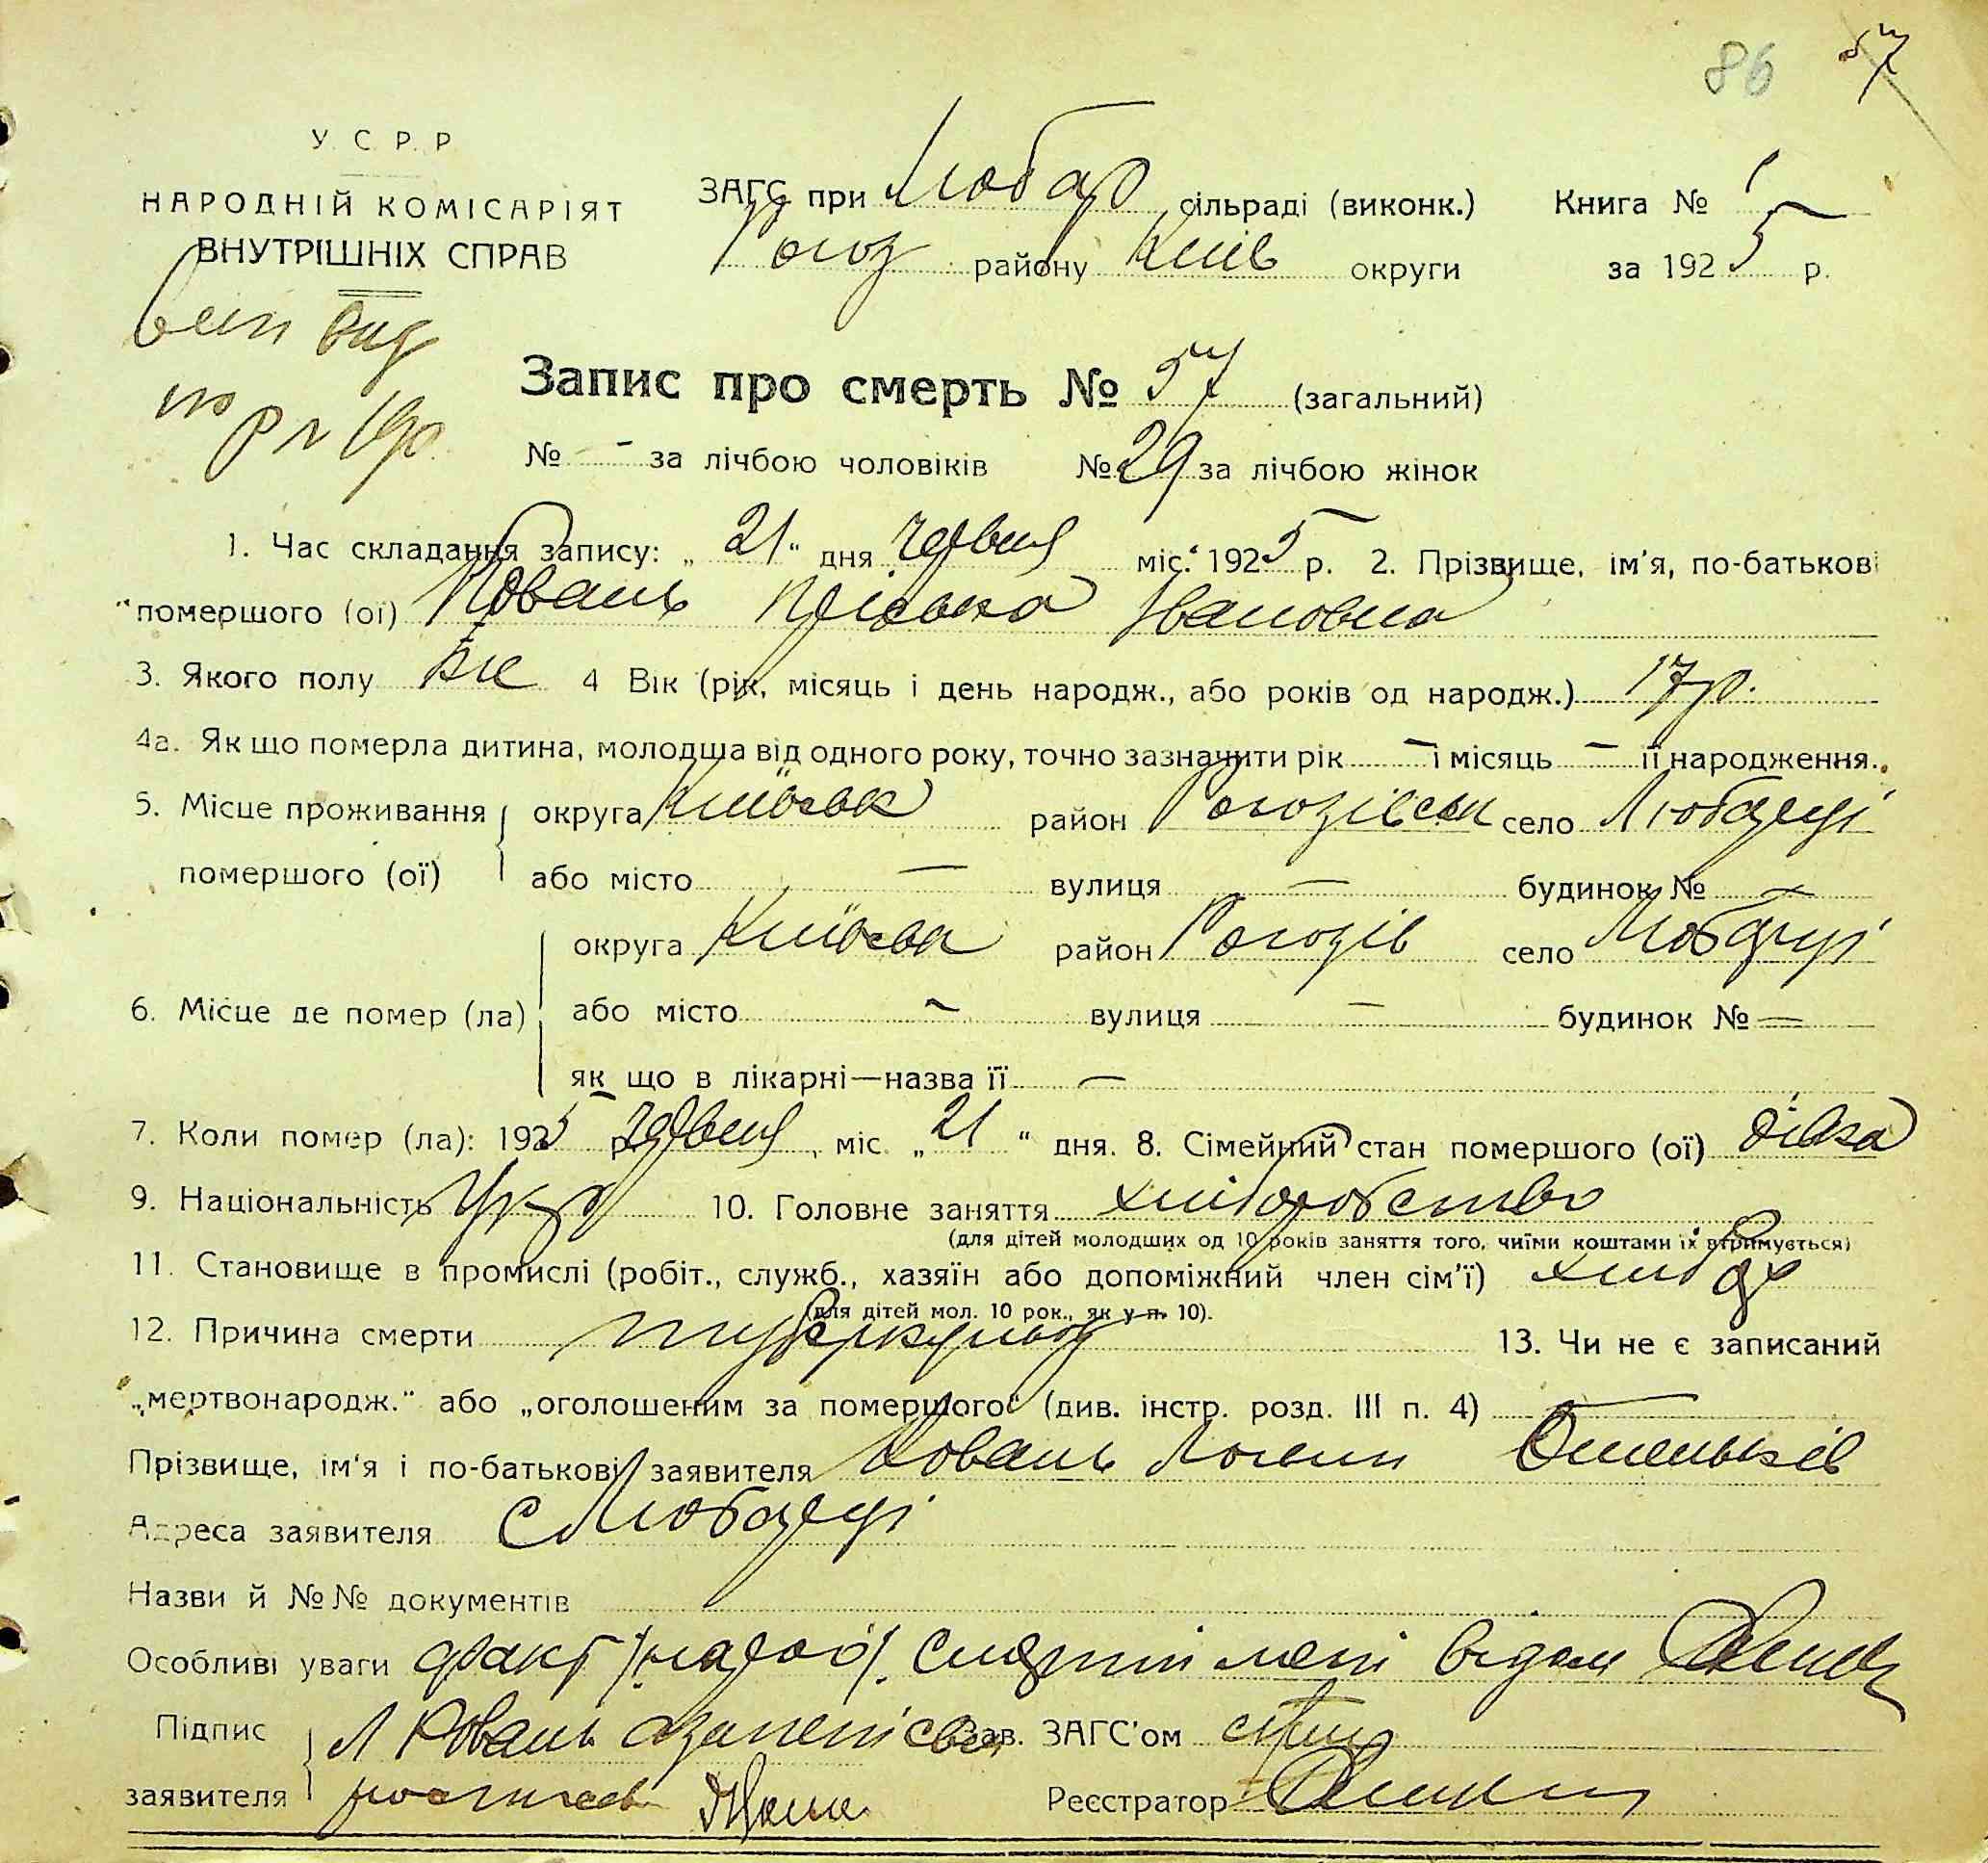 86 57
У. С. Р. Р
НАРОДНІЙ КОМІСАРІЯТ
ВНУТРІШНІХ СПРАВ
ЗАГС при Любар сільраді (виконк.) Книга № 1
Рогоз району Київ округи за 1925 р.
Запис про смерть № 57 (загальний)
№ - за лічбою чоловіків № 29 за лічбою жінок
1. Час складання запису: „21“ дня червня міс. 1925 р. 2. Прізвище, ім'я, по-батькові
помершого (ої) Коваль Пріська Івановна
3. Якого полу жі 4 Вік (рік, місяць і день народж., або років од народж.) 17 р.
4а. Як що померла дитина, молодша від одного року, точно зазначити рік — і місяць — її народження.
5. Місце проживання помершого (ої) округа Київськ район Рогозівськ село Любарці
або місто — вулиця — будинок № —
6. Місце де помер (ла) округа Київська район Рогозів село Любарці
або місто — вулиця — будинок № —
як що в лікарні—назва її —
7. Коли помер (ла): 1925 р. червня, міс. „21“ дня. 8. Сімейний стан помершого (ої) дівка
9. Національність Укр 10. Головне заняття хліборобство
(для дітей молодших од 10 років заняття того, чиїми коштами їх втримується)
11. Становище в промислі (робіт., служб., хазяїн або допоміжний член сім'ї) хлібор
(для дітей мол. 10 рок., як у п. 10).
12. Причина смерти туберкульоз 13. Чи не є записаний
„мертвонародж.“ або „оголошеним за помершого“ (див. інстр. розд. III п. 4) —
Прізвище, ім'я і по-батькові заявителя Коваль
Адреса заявителя с Любарці
Назви й №№ документів
Особливі уваги факт смерти мені відом
Підпис заявителя Л Коваль Зав. ЗАГС'ом
Реєстратор